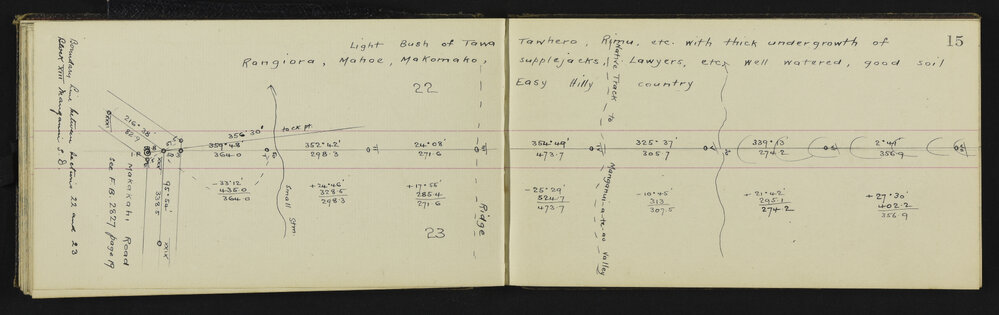 15
Light Bush of Tawa Tawhero, Rimu, etc. with thick undergrowth of
Rangiora, Mahoe, Makomako, supplejacks, Lawyers, etc. well watered, good soil
Easy Hilly country
22
Boundary line between Sections 22 and 23
Block XIII Mangaone S.D
216° 38'
82.9
356° 30' to ck pt.
359° 48'
364.0
352° 42'
298.3
24° 08'
271.6
354° 49'
473.7
325° 37'
305.7
339° 13'
274.2
2° 41'
356.9
-33° 12'
435.0
364.0
+24° 46'
328.5
298.3
+17° 55'
285.4
271.6
-25° 29'
524.7
473.7
-10° 45'
313
307.5
+21° 42'
295.1
274.2
+27° 30'
402.2
356.9
95° 50'
338.5
Makakahi Road
see F.B. 2827 page 19
Small Stm
Ridge
Native Track to Mangamua-a-te-ao Valley
23